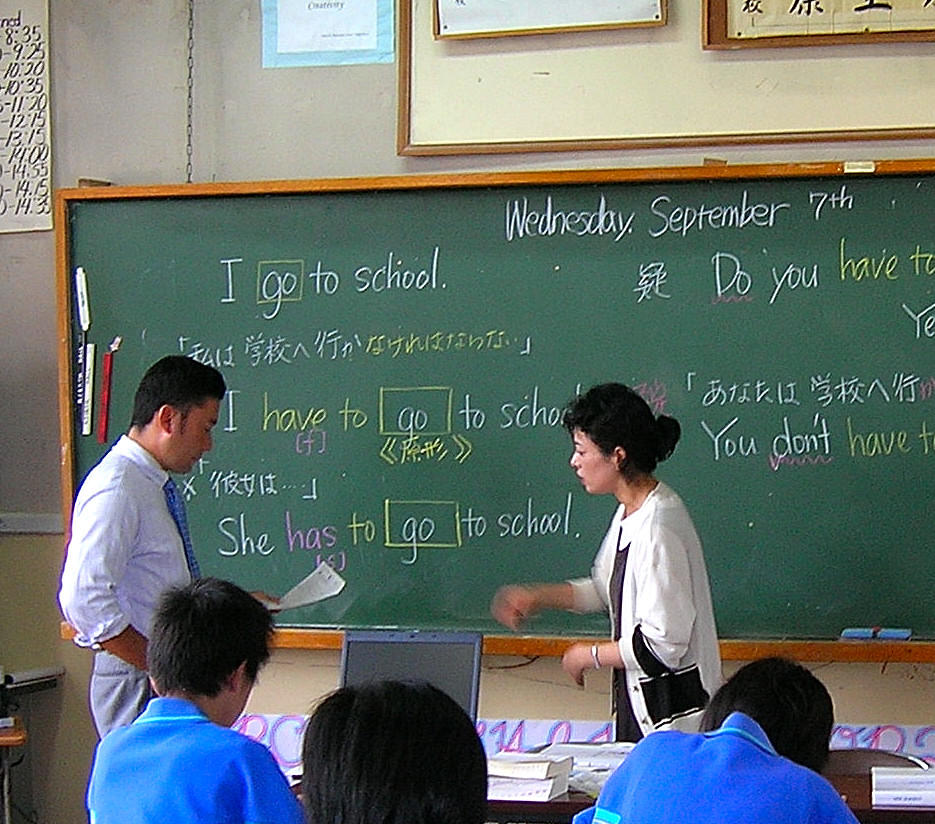 ned
8:35
-9.25
-10:20
-10:35
-11:20
-12:15
-13.15
-14:00
-14.55
-14.15
-14.35
Creativity
校
Wednesday. September 7th
I go to school.
疑 Do you have to
Ye
「私は 学校へ行かなければならない」
I have to go to schoo
[f]
《原形》
「あなたは 学校へ行か
You don't have to
「彼女は……」
She has to go to school.
[s]